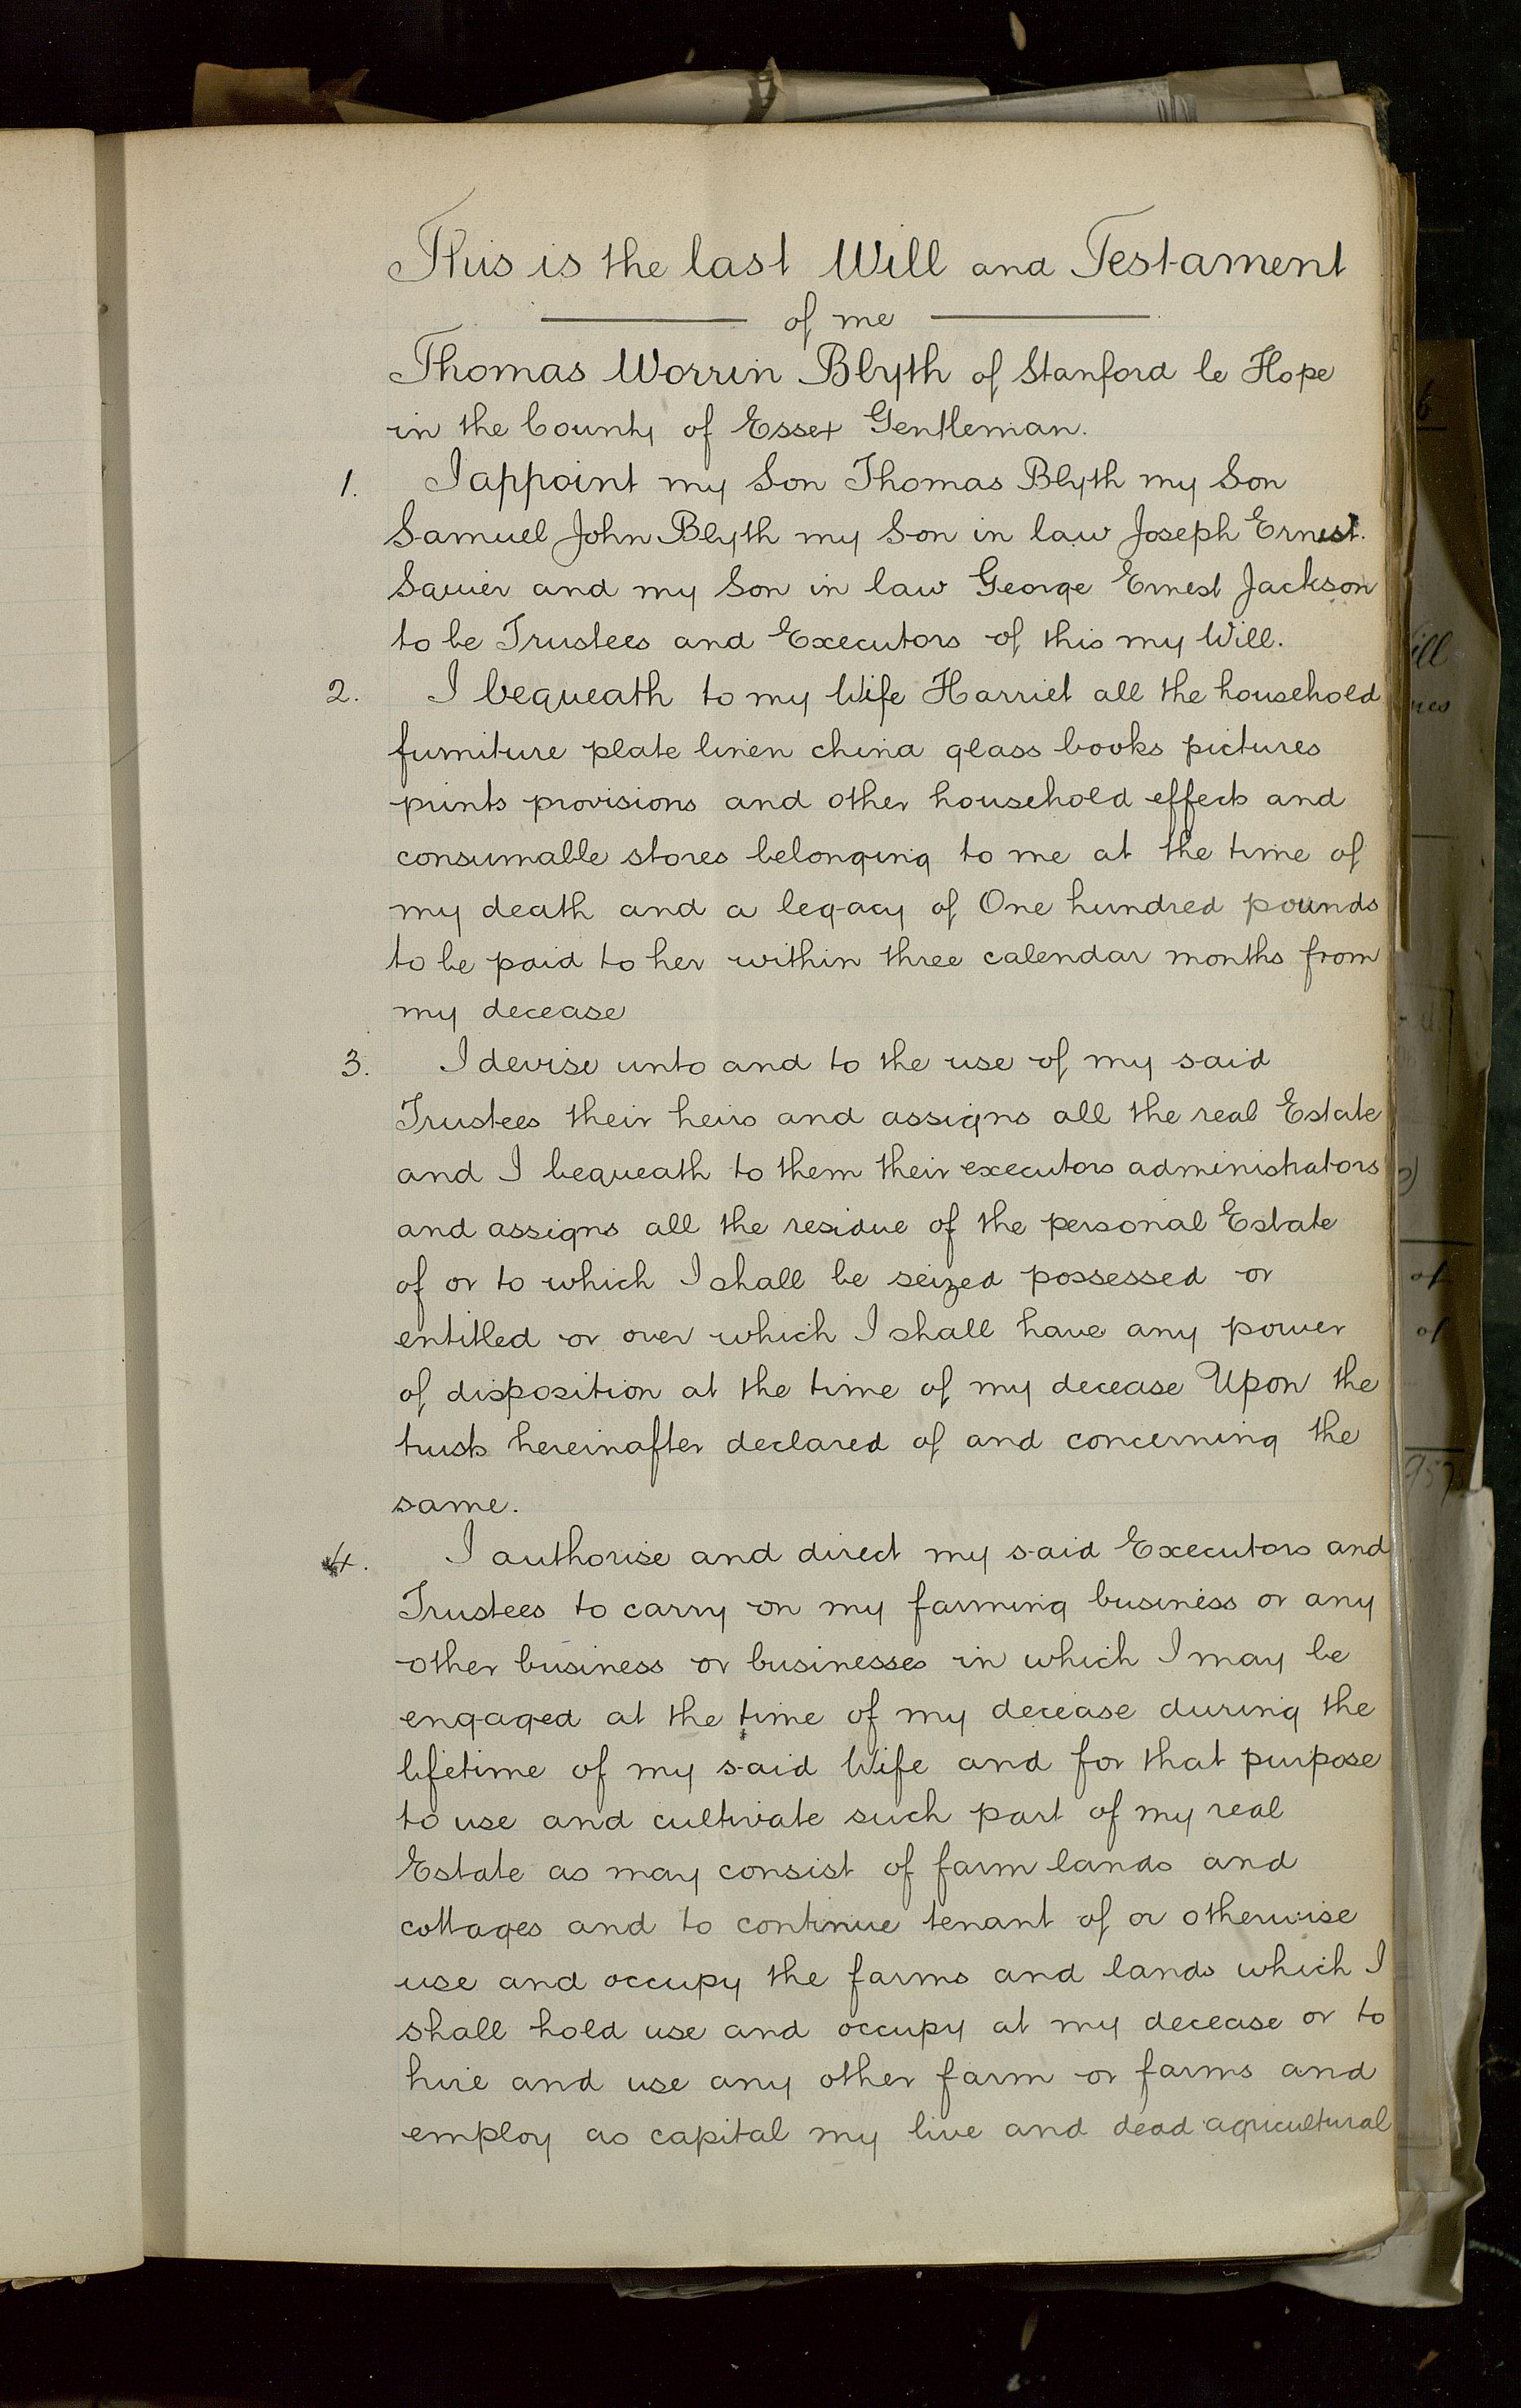 This is the last Will and Testament
of me
Thomas Worrin Blyth of Stanford le Hope
in the County of Essex Gentleman.
1. I appoint my Son Thomas Blyth my Son
Samuel John Blyth my Son in law Joseph Ernest
Squier and my Son in law George Ernest Jackson
to be Trustees and Executors of this my Will.
2. I bequeath to my Wife Harriet all the household
furniture plate linen china glass books pictures
prints provisions and other household effects and
consumable stores belonging to me at the time of
my death and a legacy of One hundred pounds
to be paid to her within three calendar months from
my decease
3. I devise unto and to the use of my said
Trustees their heirs and assigns all the real Estate
and I bequeath to them their executors administrators
and assigns all the residue of the personal Estate
of or to which I shall be seized possessed or
entitled or over which I shall have any power
of disposition at the time of my decease Upon the
trusts hereinafter declared of and concerning the
same.
4. I authorise and direct my said Executors and
Trustees to carry on my farming business or any
other business or businesses in which I may be
engaged at the time of my decease during the
lifetime of my said Wife and for that purpose
to use and cultivate such part of my real
Estate as may consist of farm lands and
cottages and to continue tenant of or otherwise
use and occupy the farms and lands which I
shall hold use and occupy at my decease or to
hire and use any other farm or farms and
employ as capital my live and dead agricultural